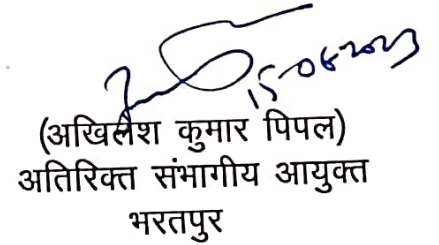 15-06-2023
(अखिलेश कुमार पिपल)
अतिरिक्त संभागीय आयुक्त
भरतपुर